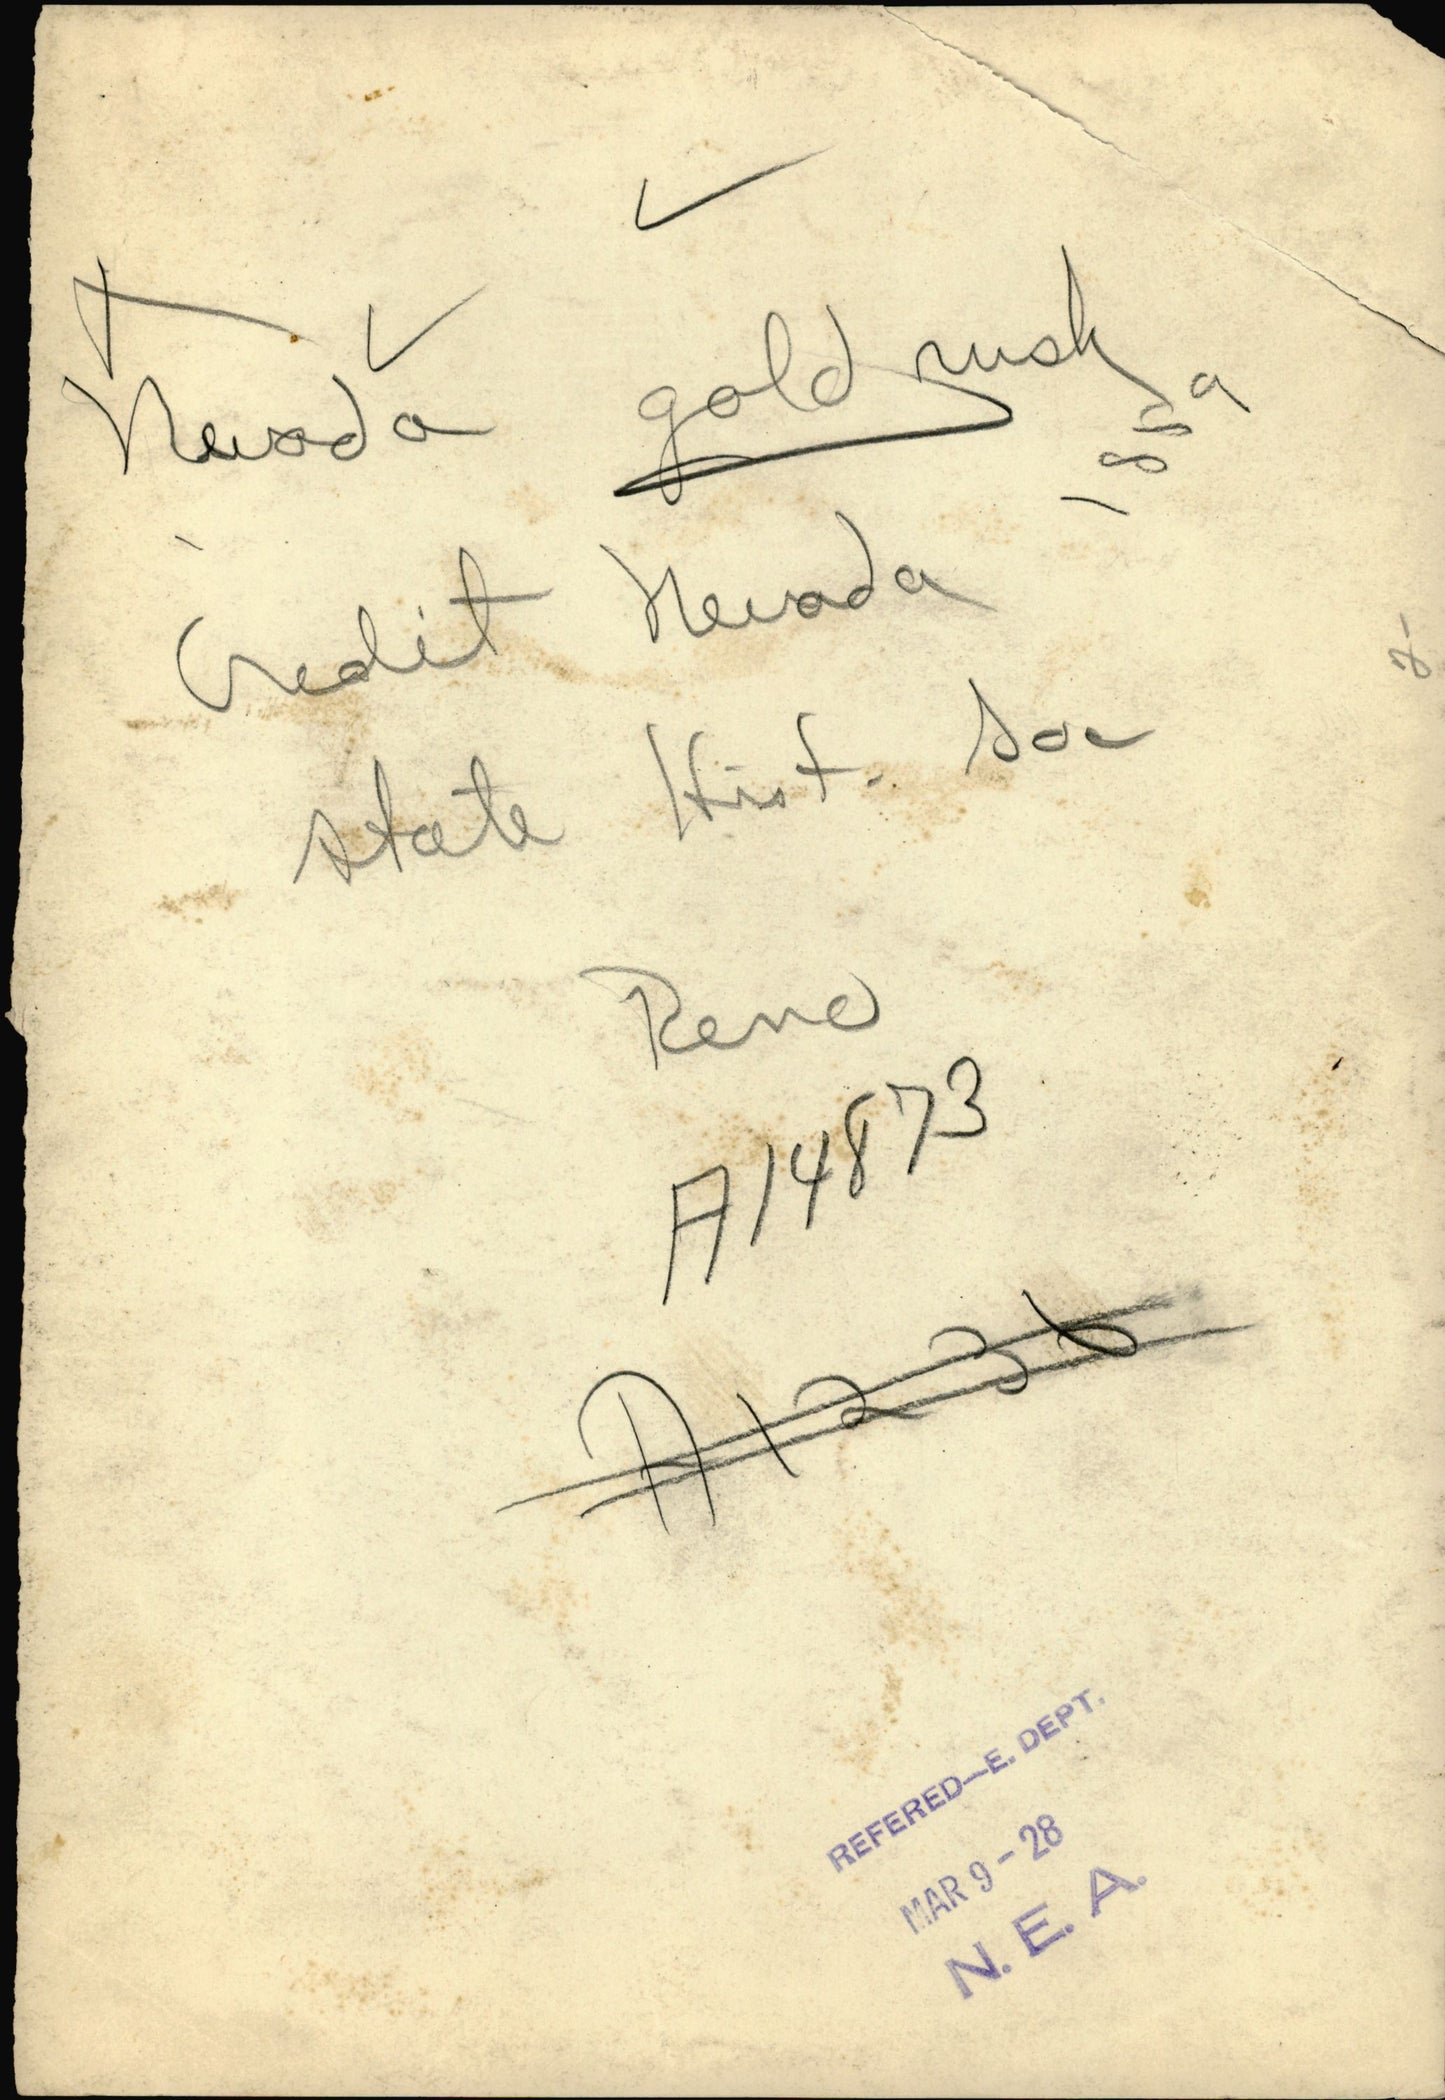 Nevada gold rush
Credit Nevada
State Hist. Soc
Reno
A14873
A1236
REFERED—E. DEPT.
MAR 9-28
N. E. A.